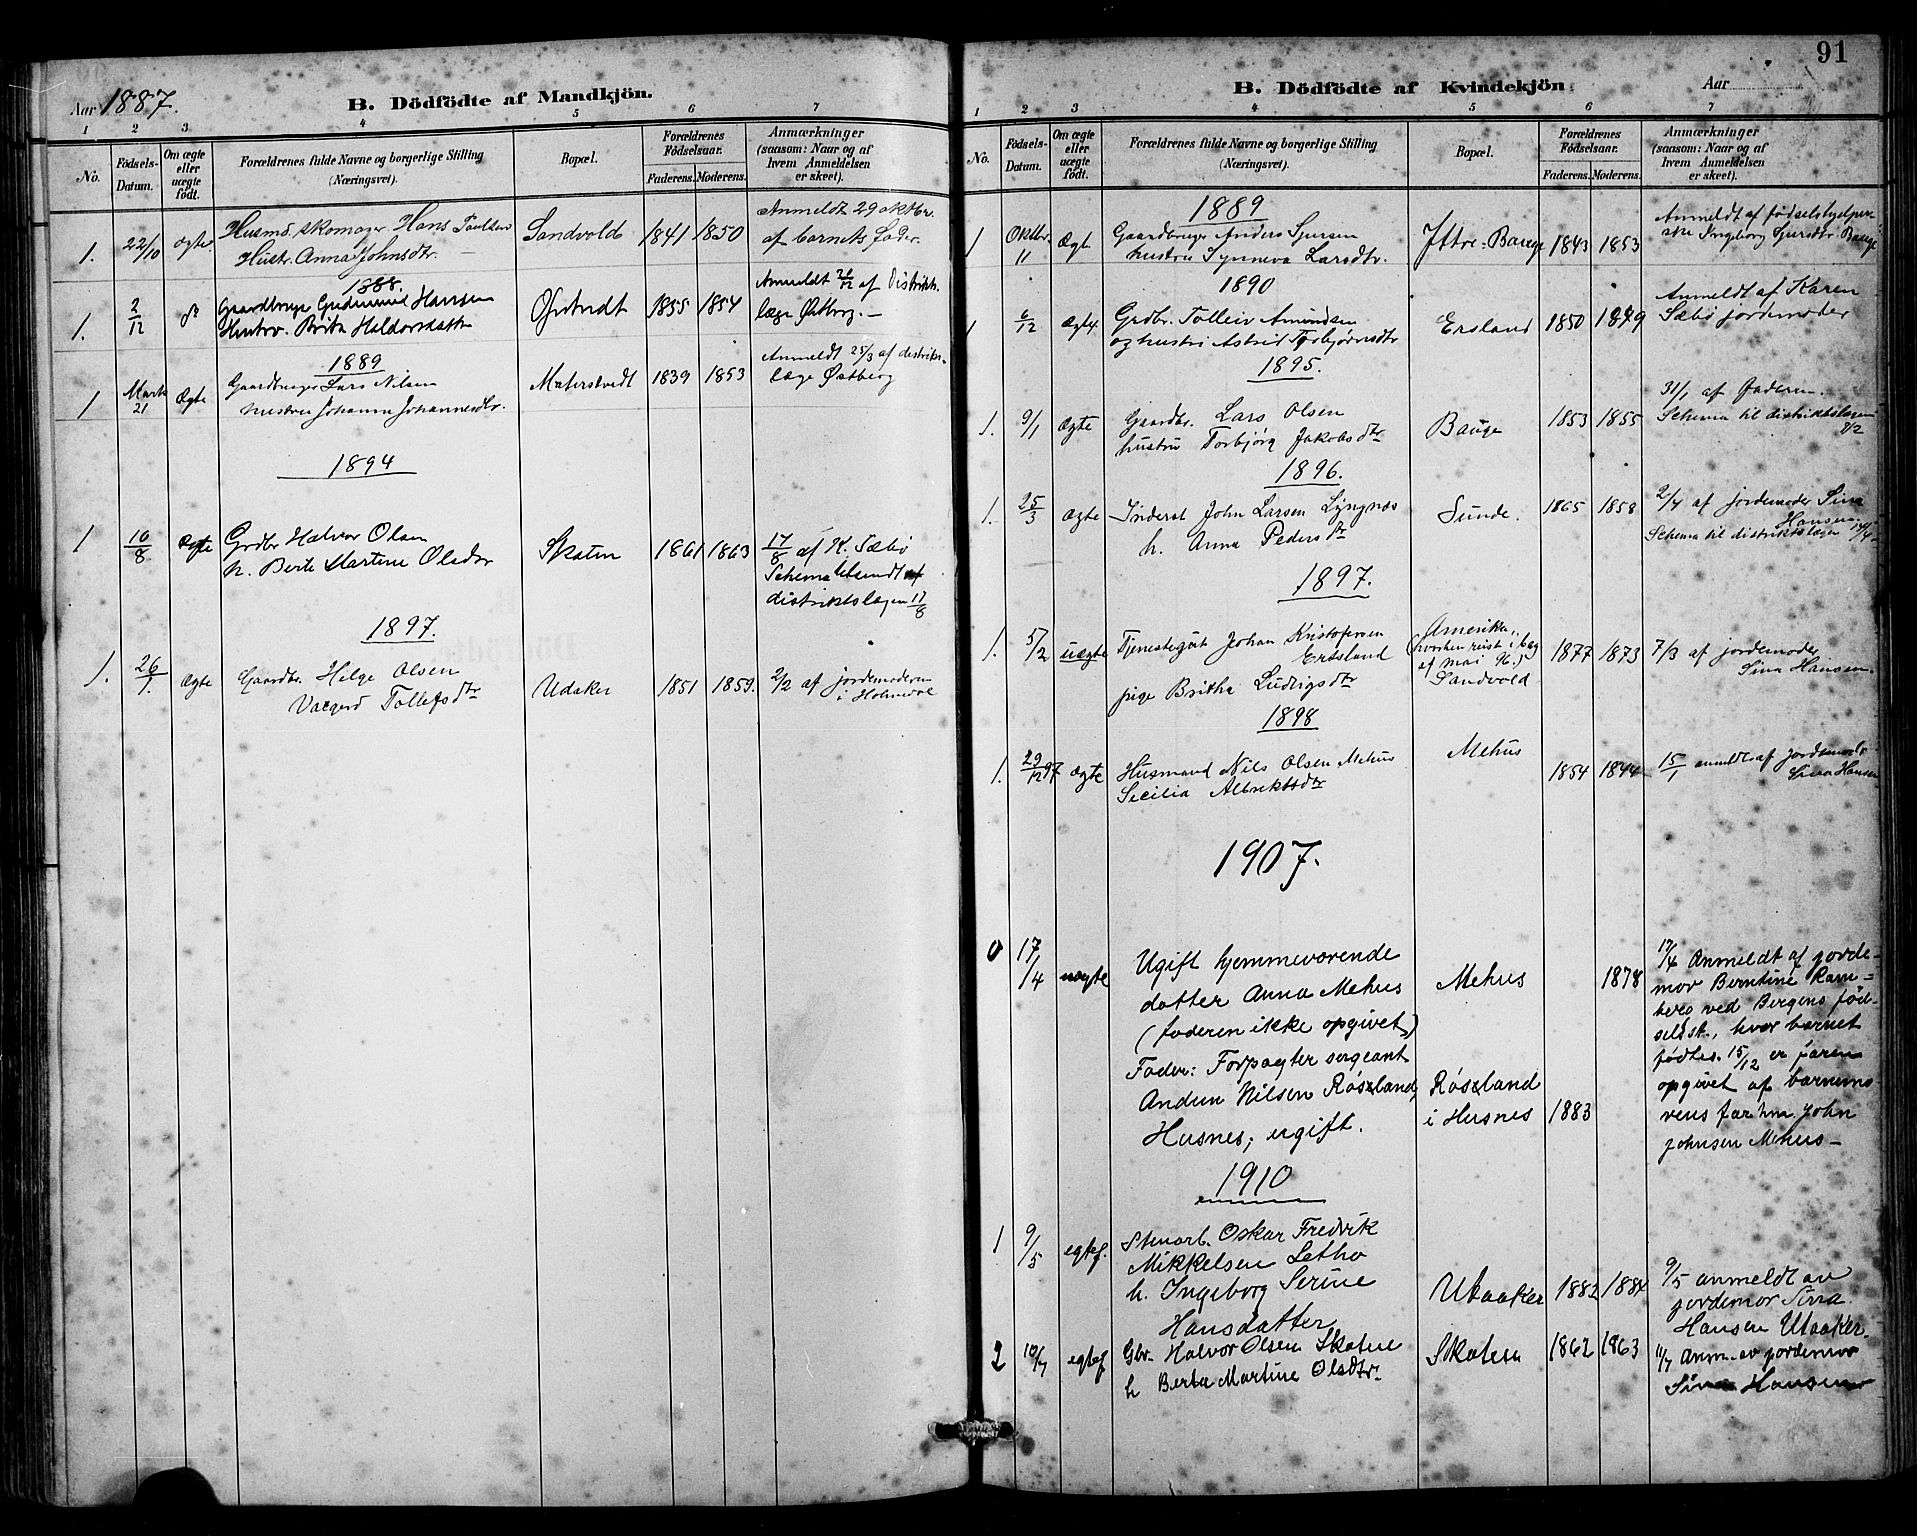 Aar 1887.
B. Dödfödte af Mandkjön.
1 2 3 4 5 6 7
No.
Födsels-Datum.
Om ægte eller uægte födt.
Forældrenes fulde Navne og borgerlige Stilling (Næringsvei).
Bopæl.
Forældrenes Födselsaar.
Faderens. Moderens.
Anmærkninger (saasom: Naar og af hvem Anmeldelsen er skeet).
1. 22/10 ægte Husmd. skomager Hans Paulsen Sandvold 1841 1850 Anmeldt 29 oktbr.
Hustr. Anna Johnsdtr. af barnets fader.
1888.
1. 2/12 Gaardbruger Gudmund Hansen 1855 1854 Anmeldt af Distrikts-
Hustru Brita Haldorsdatter læge Østberg.
1889
1 Marts 21 Ægte Gaardbruger Lars Nilsen Matersvedt 1839 1853 Anmeldt 25/3 af distrikts-
hustru Johanna Johannesdtr. læge Østberg
1894
1 10/8 ægte Grdbr Halvor Olsen Skaten 1861 1863 17/8 af K. Sæbø
h. Berte Martine Olsdtr Schema tilsendt
distriktslægen 17/8
1897.
1. 26/1. Ægte Gaardbr. Helge Olsen Udaker 1851 1859. 2/2 af jordemoderen
Valgerd Tollefsdtr i Holmedal
91
B. Dödfödte af Kvindekjön
Aar
1 2 3 4 5 6 7
No.
Födsels-Datum.
Om ægte eller uægte födt.
Forældrenes fulde Navne og borgerlige Stilling (Næringsvei).
Bopæl.
Forældrenes Födselsaar.
Faderens. Moderens.
Anmærkninger (saasom: Naar og af hvem Anmeldelsen er skeet).
1889
1 Oktbr. 11 Ægte Gaardbruger Anders Sjursen Ittre-Bauge 1843 1853 Anmeldt af fødselshjelper-
hustru Synneva Larsdtr. ske Ingeborg Sjursdtr. Bauge
1890
1 6/12 Ægte. Grdbr. Tolleiv Amundsen Ersland 1850 1849 Anmeldt af Karen
og hustru Astrid Torbjørnsdtr Sæbö jordemoder
1895.
1. 9/1 ægte Gaardbr. Lars Olsen Bauge 1853 1855 31/1 af Faderen.
hustru Torbjörg Jakobsdtr Schema til distriktslægen 2/2
1896.
1. 25/3 ægte Inderst John Larsen Lyngnes Sunde. 1865 1858 2/4 af jordemoder Sina Hansen
h. Anna Pedersdtr Schema til distriktslægen
1897.
1. 5/2 uægte Tjenestegut Johan Kristofersen Ersland Amerika, (hvorhen reist i beg. af mai 96.) 1877 1873 7/3 af jordemoder
pige Britha Ludvigsdtr Sandvold Sina Hansen.
1898
1. 29/12 97 ægte Husmand Nils Olsen Mehus Mehus 1854 1844 15/1 anmeldt af jordemoder
Secilia Albriktsdtr Sina Hansen
1907.
0 17/4 uægte Ugift hjemmeværende Mehus 1878 17/4 Anmeldt af jorde-
datter Anna Mehus mor Berntine Ram-
(faderen ikke opgivet) berg ved Bergens fød-
Fader: Forpagter sergeant selsst., hvor barnet
Andun Nilsen Røssland, Røssland fødtes. 15/12 er faren
Husnes, ugift. i Husnes 1883 opgivet af barnemo-
rens far hm. John
Johnsen Mehus
1910
1 9/5 egtef. Stenarb. Oskar Fredrik
Mikkelsen Letho
h. Ingeborg Serine Utaaker 1882 1884 9/5 anmeldt av
Hansdatter jordemor Sina
Hansen Utaaker.
2 10/7 egtef Gbr. Halvor Olsen Skaten Skaten 1862 1863 11/7 Anm. av jordemor
h Berta Martine Olsdtr. Sina Hansen